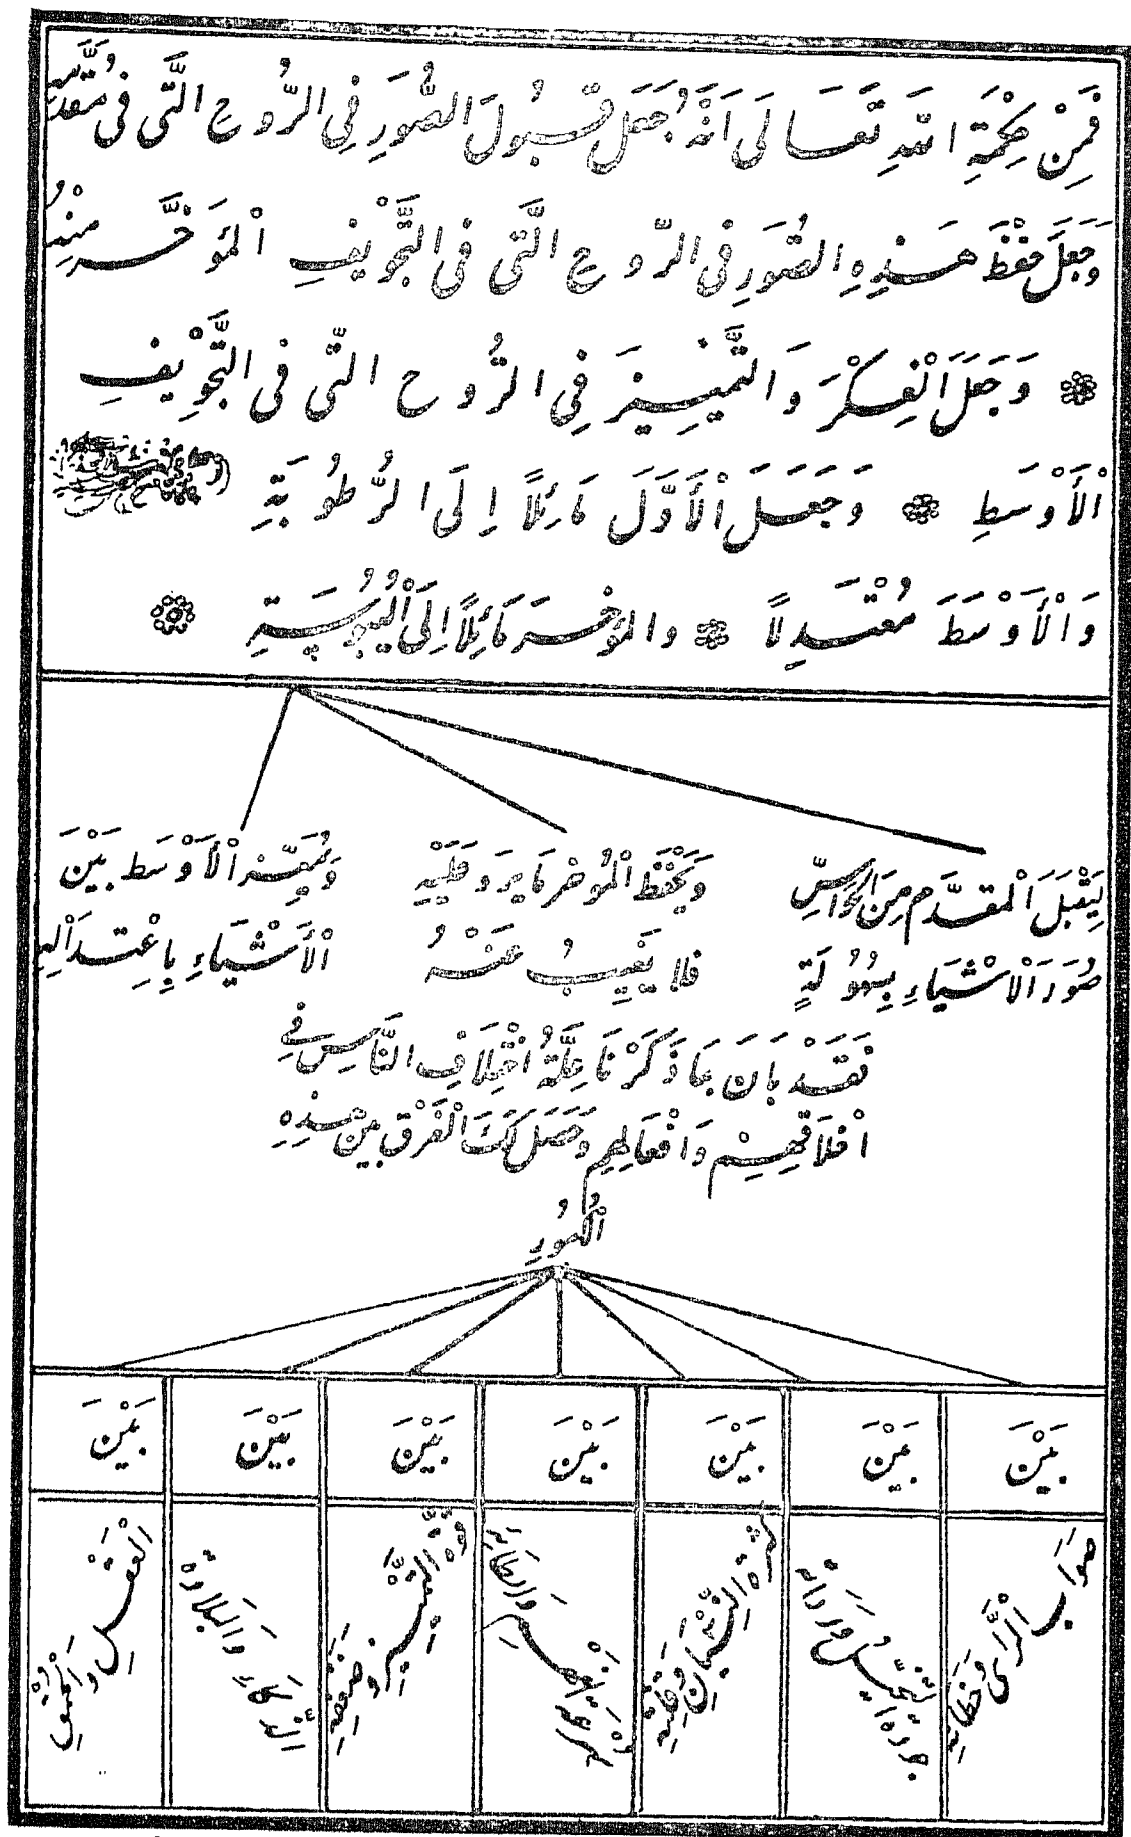 فَمِنْ حِكْمَةِ اللهِ تَعَالَى اَنَّهُ جَعَلَ قَبُولَ الصُّوَرِ فِى الرُّوحِ الَّتَى فى مُقَدَّمِهِ
وَجَعَلَ حِفْظَ هَذِهِ الصُّوَرِ فى الرّوحِ الَّتى فى التَّجْوِيفِ الْمُؤَخَّرِ مِنْهُ
وَجَعَلَ الْفِكْرَ وَالتَّمْيِيزَ فِى الرُّوحِ التَّى فى التَّجْوِيفِ
الْأَوْسَطِ وَجَعَلَ الْأَوَّلَ مَائِلًا اِلَى الرُّطُوبَةِ
وَالْأَوْسَطَ مُعْتَدِلاً والمؤخر مَائِلًا اِلَى الْيُبُوسَةِ
لِيَقْبَلَ الْمقدَّم مِنَ الحَوَاسِّ
صُوَرَ الْاَشْيَاءِ بِسُهُولَةٍ
وَيَحْفَظَ الْمُؤخر مَا يرد عَلَيْهِ
فلا يَغِيبُ عَنْهُ
وَيُمَيِّز الْأَوْسَط بَيْنَ
الْأَشْيَاءِ بِاعْتِدَالِهِ
فَقَدْ بَانَ بِمَا ذَكَرْنَا عِلَّةُ اخْتِلَافِ النَّاسِ فِى
اخْلَاقِهِمْ وَافْعَالِهِمْ وَحَصَلَ لَكَ الْفَرْق بين هَذِهِ
الْأُمُورِ
بَيْنَ بَيْنَ بَيْنَ بَيْنَ بَيْنَ بَيْنَ بَيْنَ
صَوَابِ الْرَّأى وَخَطَائِهِ
جودة التخيل وَرداته
كثرة النِّسْيَانِ وَقِلَّتِهِ
قوة التَّمْيِيز وضَعْفِهِ
الذكاءِ وَالبلادة
الْعَقْلِ والْحُمْقِ